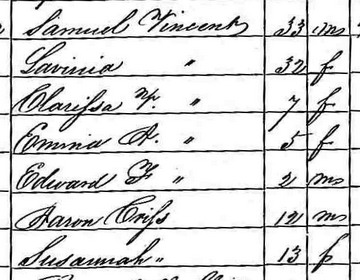 Samuel Vincent 33 m
Lavinia " 32 f
Clarissa " 7 f
Emma A. " 5 f
Edward F " 2 m
Aaron Criss 12 m
Susannah " 13 f